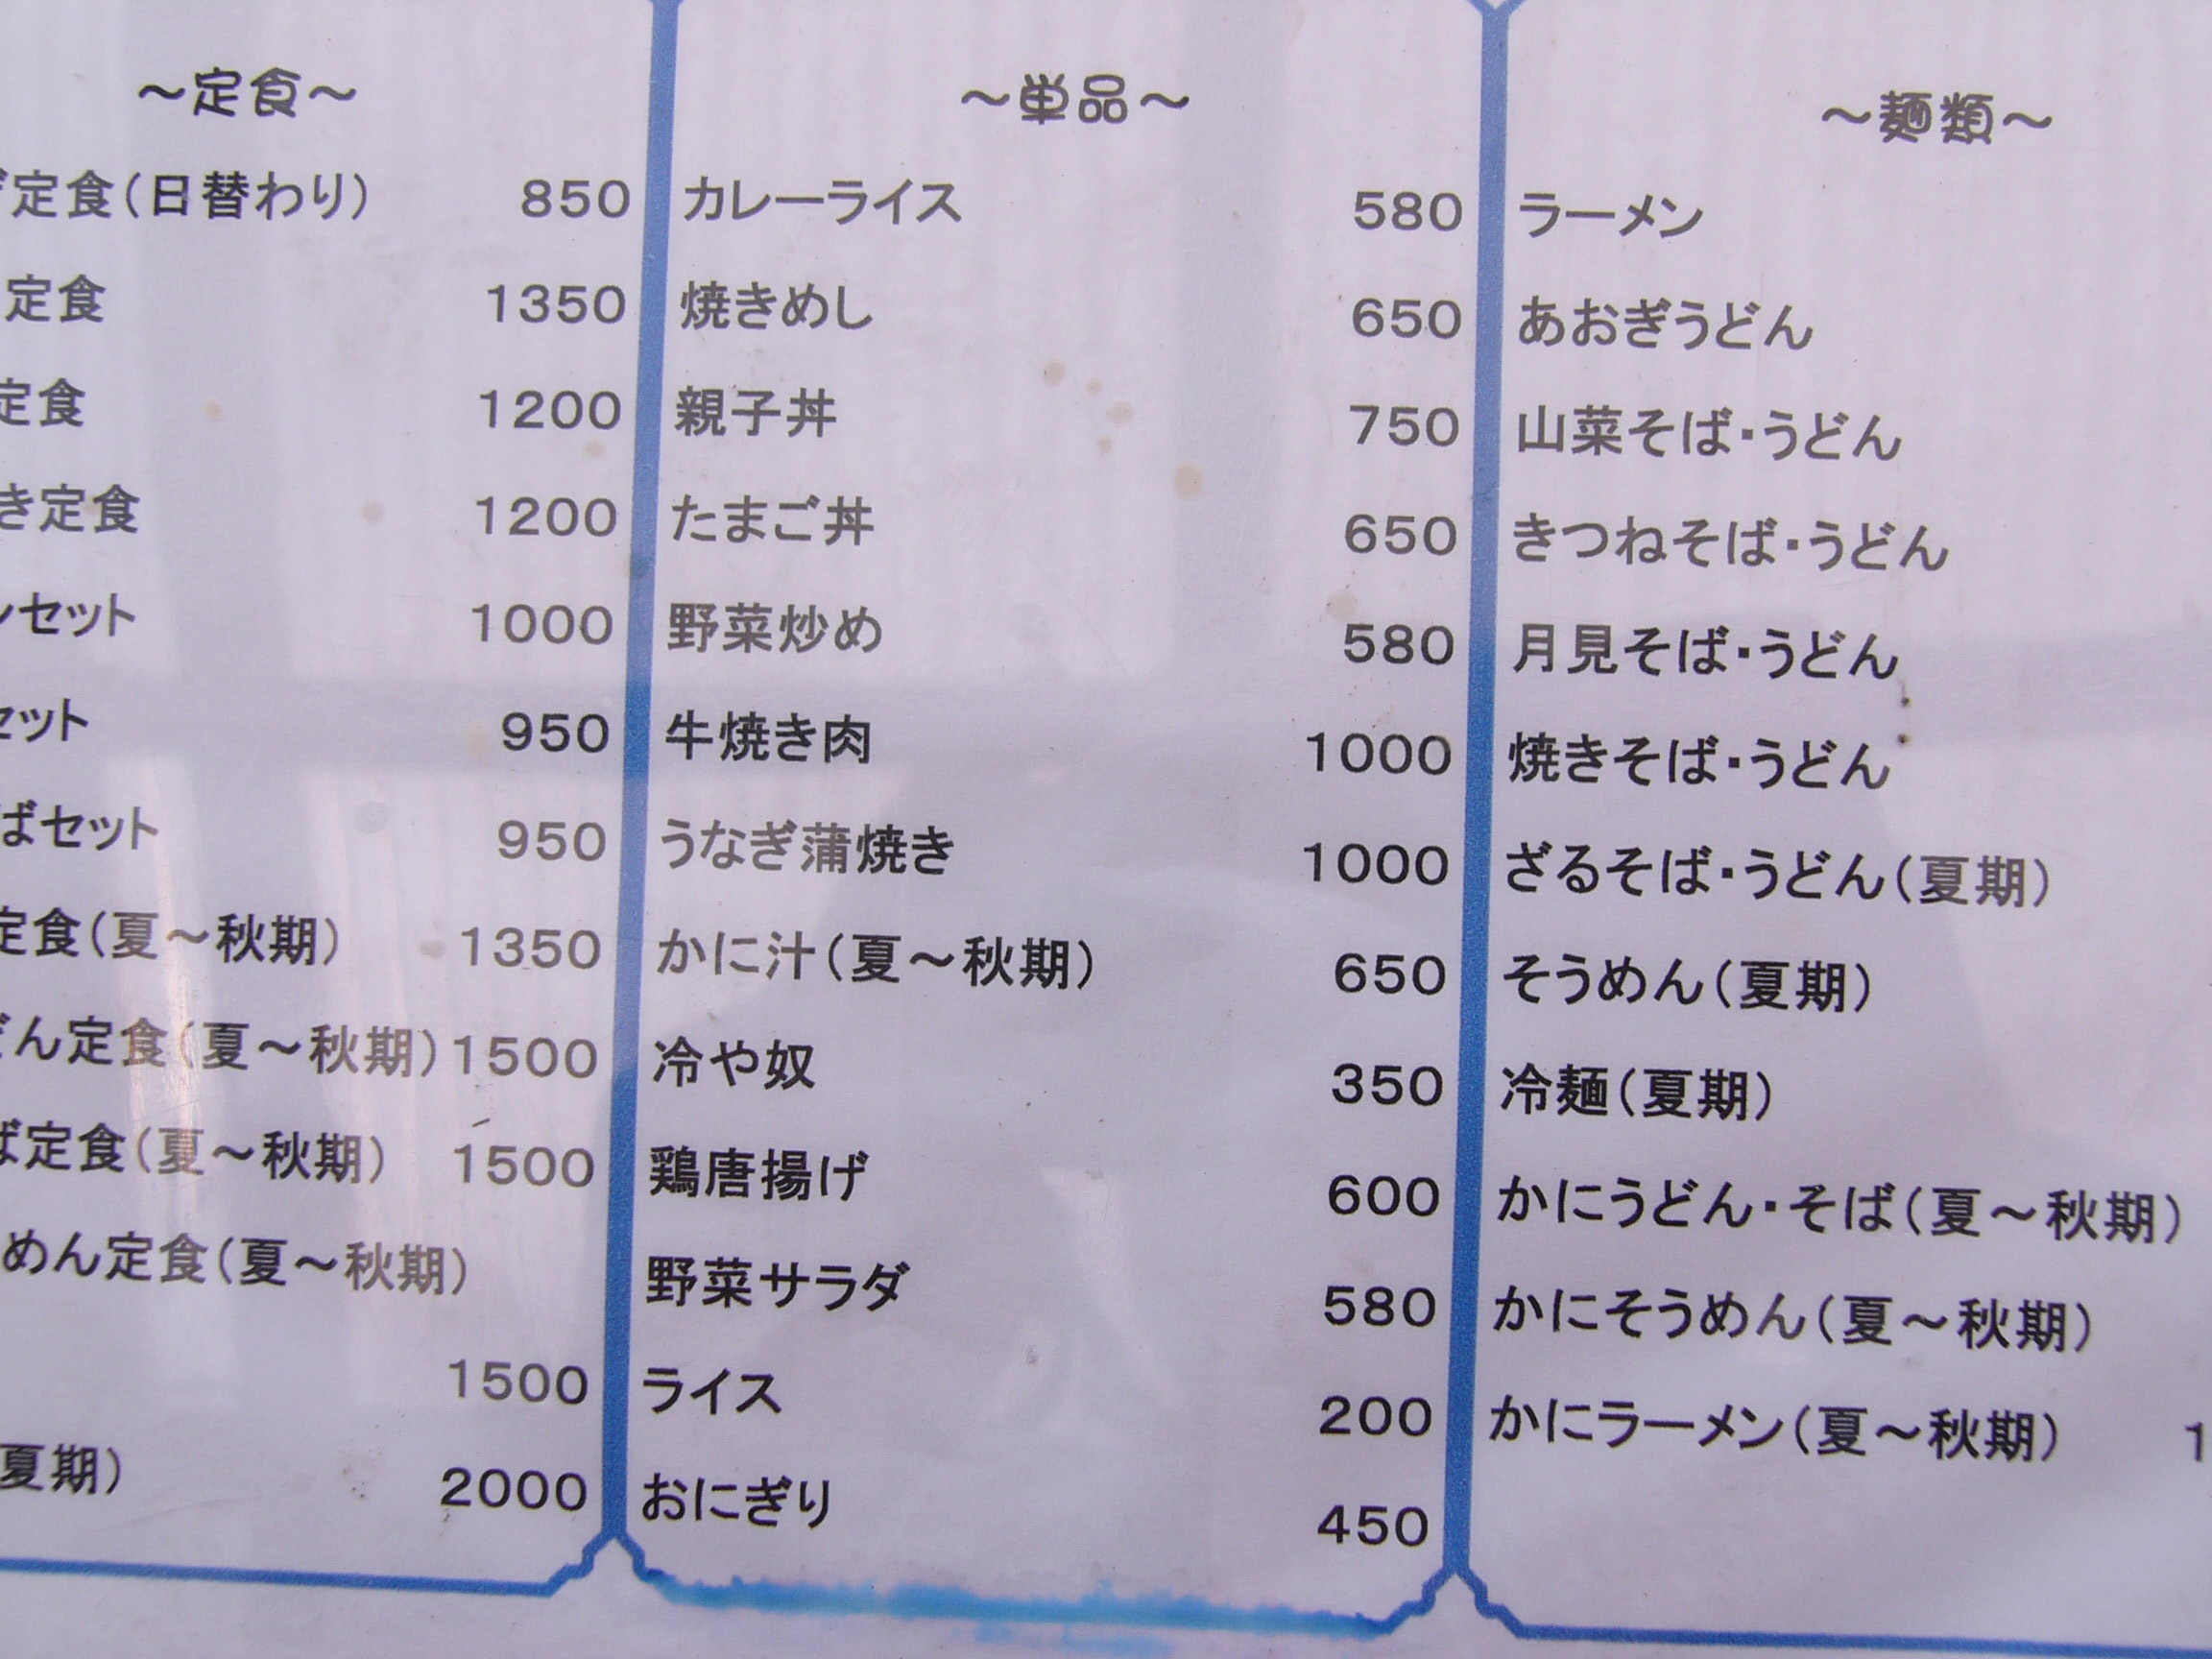 ～定食～
定食(日替わり) 850
定食 1350
定食 1200
き定食 1200
ンセット 1000
セット 950
ばセット 950
定食(夏～秋期) 1350
どん定食(夏～秋期) 1500
ば定食(夏～秋期) 1500
めん定食(夏～秋期)
1500
夏期) 2000
～単品～
カレーライス 580
焼きめし 650
親子丼 750
たまご丼 650
野菜炒め 580
牛焼き肉 1000
うなぎ蒲焼き 1000
かに汁(夏～秋期) 650
冷や奴 350
鶏唐揚げ 600
野菜サラダ 580
ライス 200
おにぎり 450
～麺類～
ラーメン
あおぎうどん
山菜そば・うどん
きつねそば・うどん
月見そば・うどん
焼きそば・うどん
ざるそば・うどん(夏期)
そうめん(夏期)
冷麺(夏期)
かにうどん・そば(夏～秋期)
かにそうめん(夏～秋期)
かにラーメン(夏～秋期) 1